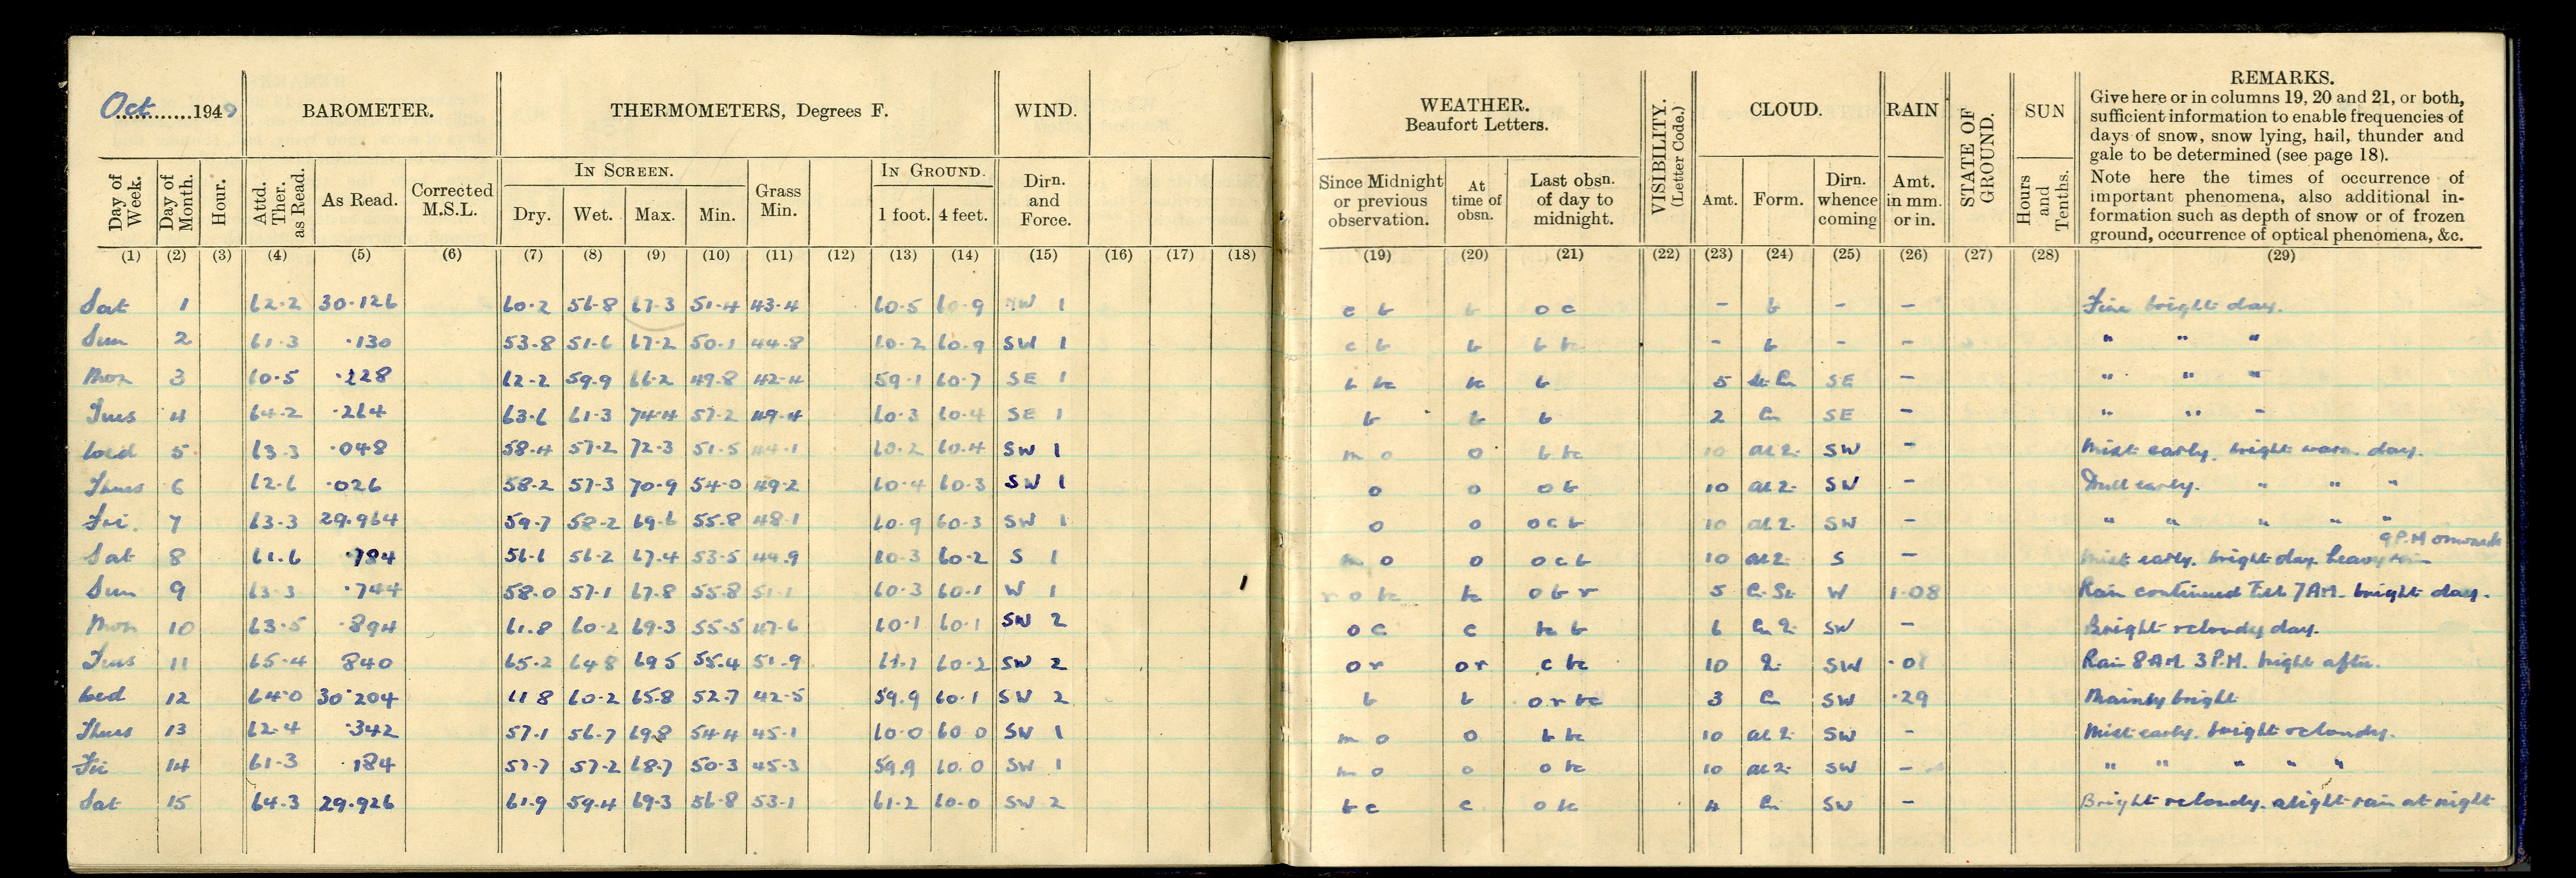 Oct 1949 BAROMETER. THERMOMETERS, Degrees F. WIND. WEATHER. Beaufort Letters. VISIBILITY. (Letter Code.) CLOUD. RAIN STATE OF GROUND. SUN REMARKS.
Give here or in columns 19, 20 and 21, or both,
sufficient information to enable frequencies of
days of snow, snow lying, hail, thunder and
gale to be determined (see page 18).
Note here the times of occurrence of
important phenomena, also additional in-
formation such as depth of snow or of frozen
ground, occurrence of optical phenomena, &c.
Day of Week. Day of Month. Hour. Attd. Ther. as Read. As Read. Corrected M.S.L. IN SCREEN. Dry. Wet. Max. Min. Grass Min. IN GROUND. 1 foot. 4 feet. Dirn. and Force. Since Midnight or previous observation. At time of obsn. Last obsn. of day to midnight. Amt. Form. Dirn. whence coming Amt. in mm. or in. Hours and Tenths.
(1) (2) (3) (4) (5) (6) (7) (8) (9) (10) (11) (12) (13) (14) (15) (16) (17) (18) (19) (20) (21) (22) (23) (24) (25) (26) (27) (28) (29)
Sat 1 62.2 30.126 60.2 56.8 67.3 51.4 43.4 60.5 60.9 NW 1 c b b o c - b - - Fine bright day.
Sun 2 61.3 .130 53.8 51.6 67.2 50.1 44.8 60.2 60.9 SW 1 c b b b bc - b - - " " "
Mon 3 60.5 .228 62.2 59.9 66.2 49.8 42.4 59.1 60.7 SE 1 b bc bc b 5 SE - " " "
Tues 4 64.2 .264 63.6 61.3 74.4 57.2 49.4 60.3 60.4 SE 1 b b b 2 Cu SE - " " "
Wed 5 63.3 .048 58.4 57.2 72.3 51.5 44.1 60.2 60.4 SW 1 m o o b bc 10 SW - Mist early. bright warm day.
Thurs 6 62.6 .026 58.2 57.3 70.9 54.0 49.2 60.4 60.3 SW 1 o o o b 10 SW - Dull early. " " "
Fri. 7 63.3 29.964 59.7 58.2 69.6 55.8 48.1 60.9 60.3 SW 1 o o o c b 10 SW - " " " " "
Sat 8 61.6 .784 56.1 56.2 67.4 53.5 44.9 60.3 60.2 S 1 m o o o c b 10 S - Mist early. bright day. heavy rain 9 P.M onwards
Sun 9 63.3 .744 58.0 57.1 67.8 55.8 51.1 60.3 60.1 W 1 r o bc bc o b r 5 W 1.08 Rain continued till 7 AM. bright day.
Mon 10 63.5 .894 61.8 60.2 69.3 55.5 47.6 60.1 60.1 SW 2 o c c bc b 6 SW - Bright & cloudy day.
Tues 11 65.4 840 65.2 64 8 69 5 55.4 51.9 61.1 60.2 SW 2 o r o r c bc 10 SW Rain 8 AM 3 P.M. bright after.
Wed 12 64.0 30.204 61 8 60.2 65.8 52.7 42.5 59.9 60.1 SW 2 b b o r bc 3 Cu SW .29 Mainly bright
Thurs 13 62.4 .342 57.1 56.7 69.8 54.4 45.1 60.0 60 0 SW 1 m o o b bc 10 SW - Mist early. bright & cloudy.
Fri 14 61.3 .184 57.7 57.2 68.7 50.3 45.3 59.9 60.0 SW 1 m o o o bc 10 SW - " " " " "
Sat 15 64.3 29.926 61.9 59.4 69.3 56.8 53.1 61.2 60.0 SW 2 b c c o bc 4 Cu SW - Bright & cloudy. slight rain at night